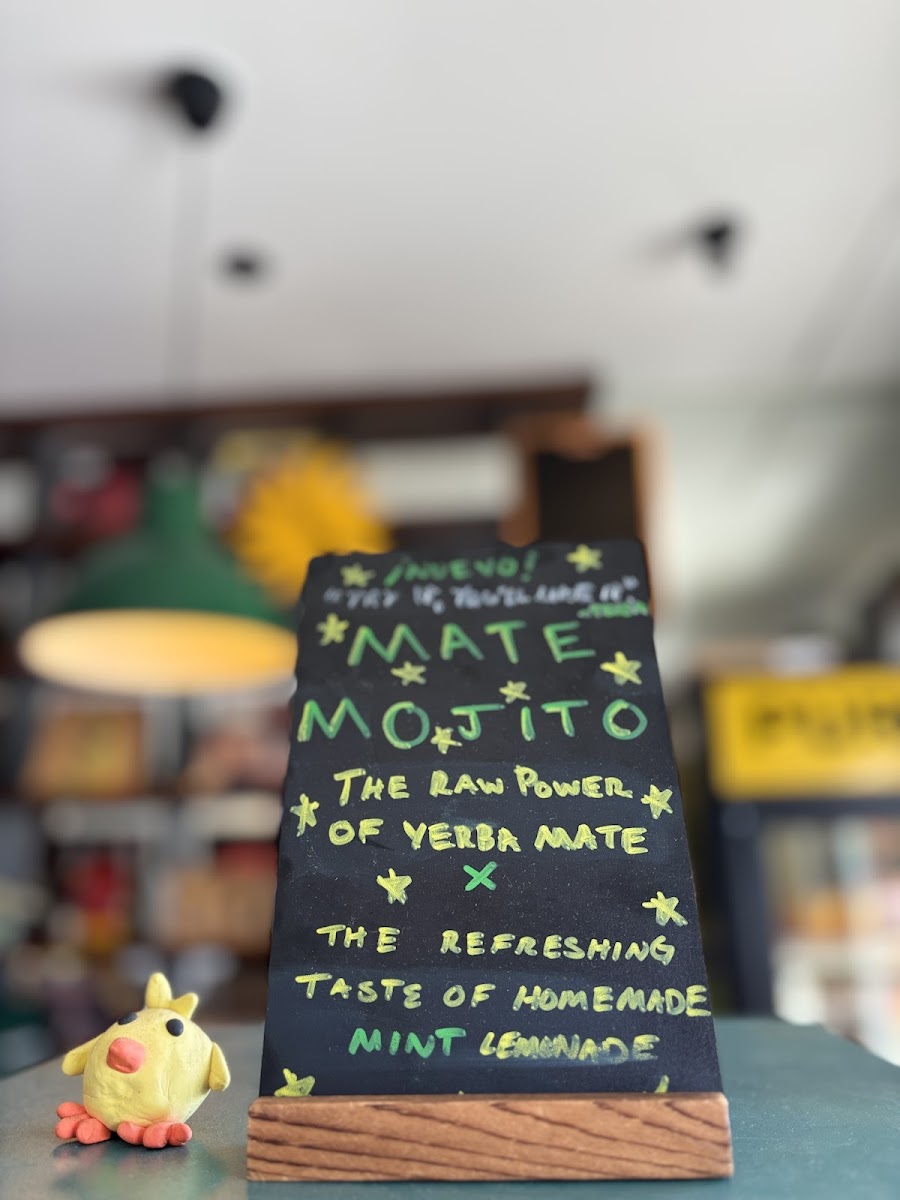 ¡NUEVO!
"TRY IT, YOU'LL LIKE IT"
MATE
MOJITO
THE RAW POWER
OF YERBA MATE
X
THE REFRESHING
TASTE OF HOMEMADE
MINT LEMONADE